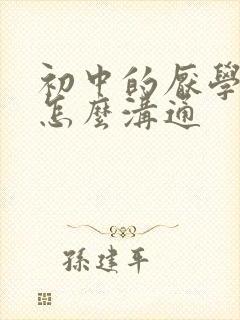 初中的厭學
怎麼溝通
孫建平